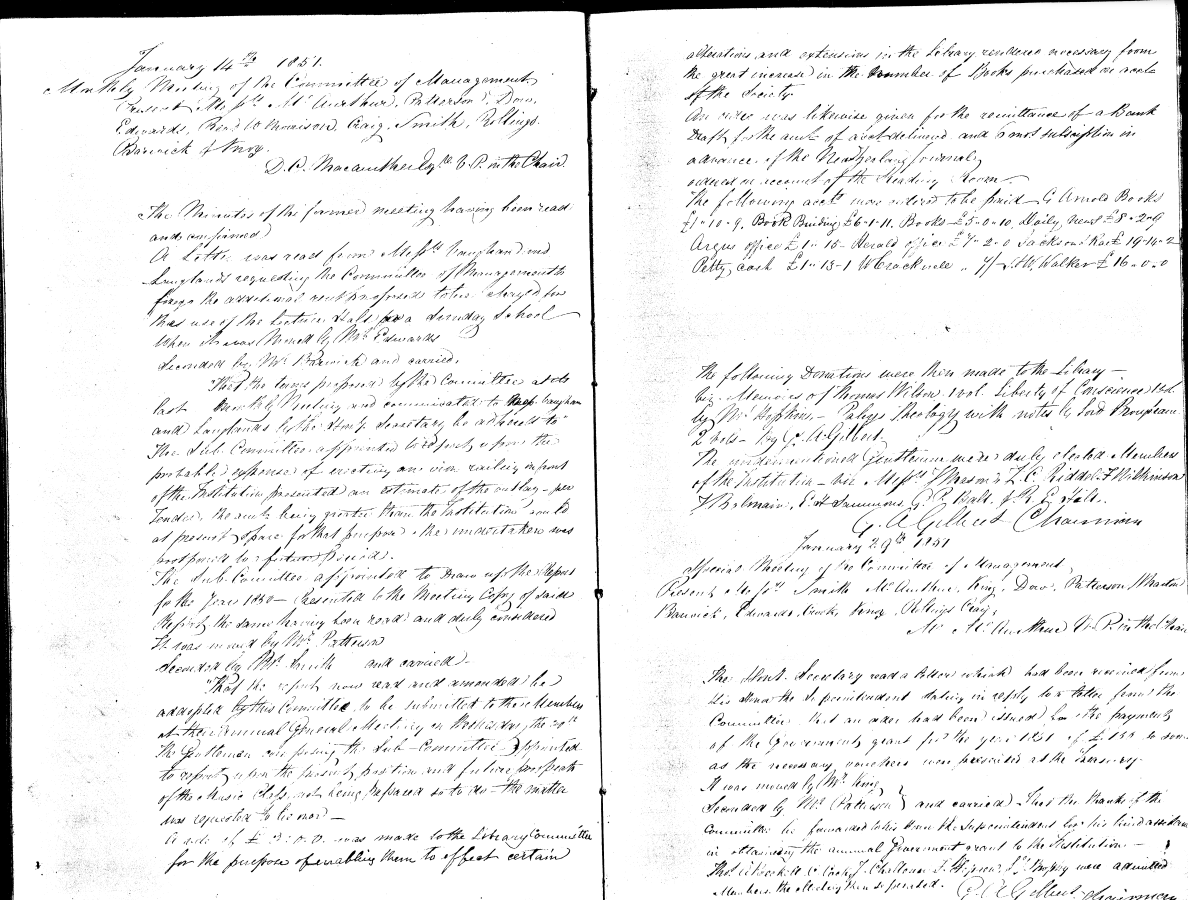 January 14th 1851.
Monthly Meeting of the Committee of Management
Present Messrs McArthur, Patterson, Dow,
Edwards, Revd W Morrison, Craig, Smith, Rollings
Barwick &
D. C. Macarthur Esqre V. P. in the Chair
The Minutes of the former meeting having been read
and confirmed
A Letter was read from Messrs Vaughan and
Langlands requesting the Committee of Management to
forego the additional rent proposed to be charged for
the use of the Lecture Hall for a Sunday School
When it was Moved by Mr Edwards
Seconded by Mr Barwick and carried.
That the terms proposed by the Committee at its
last Monthly Meeting and communicated to Vaughan
and Langlands by the Hony. Secretary be adhered to"
The Sub-Committee appointed to report upon the
probable expense of erecting an iron railing in front
of the Institution presented an estimate of the outlay - per
Tender, the amt being greater than the Institution could
at present spare for that purpose the undertaken was
postponed to a future Period.
The Sub-Committee appointed to Draw up the Report
for the Year 1850 - Presented to the Meeting Copy of said
Report, the same having been read and duly considered
It was moved by Mr Patterson
Seconded by Mr Smith and carried -
"That the report now read and amended be
addopted by this Committee to be submitted to the Members
at their Annual General Meeting on Wednesday the
The Gentlemen composing the Sub-Committee appointed
to report upon the present position and future prospects
of the Music Class, not being prepared so to do - the matter
was requested to lie over -
A vote of £ was made to the Library Committee
for the purpose of enabling them to effect certain
alterations and extensions in the Library rendered necessary from
the great increase in the number of Books purchased on acct
of the Society
An order was likewise given for the remittance of a Bank
Draft for the amt of acct delivered and 6 months subscription in
advance of the
ordered on account of the Reading Room -
The following accts were ordered to be paid - G Arnold Books
£1-10-9, Book Binding £6-1-11, Books £5-0-10, Daily News £8-2-9
Argus office £1-15- Herald office £7-2-0 Jackson Rae £19-14-2
Petty cash £1-13-1 W 7/- W. Walker £16-0-0
The following Donations were then made to the Library -
viz - Memoirs of Thomas Wilson 1 vol. Liberty of Conscience 1 vol.
by Mr Hopkins - Paleys Theology with notes by Lord Brougham
2 vols - by G. A Gilbert
The undermentioned Gentlemen were duly elected Members
of the Institution - viz Messrs L. C. Riddel F Wilkinson
Balmain, E H Simmons G. P. Ball. J. R. E
G. A Gilbert Chairman
January 29th 1851
Special Meeting of the Committee of Management
Present Messrs Smith McArthur, King, Dow, Patterson, Wharton
Barwick, Edwards, Rollings Craig,
Mr McArthur V. P. in the Chair
The Hont. Secretary read a letter which had been received from
His Honor the Superintendent stating in reply to a letter from the
Committee that an order had been issued for the payment
of the Government grant for the year 1851 of £150 so soon
as the necessary vouchers were presented at the Treasury.
It was moved by Mr King
Seconded by Mr Patterson } and carried - That the thanks of the
Committee be forwarded to his Honor the Superintendent for his kind assistance
in obtaining the annual Government grant to the Institution -
were admitted
Members, the Meeting then separated. G. A Gilbert - Chairman